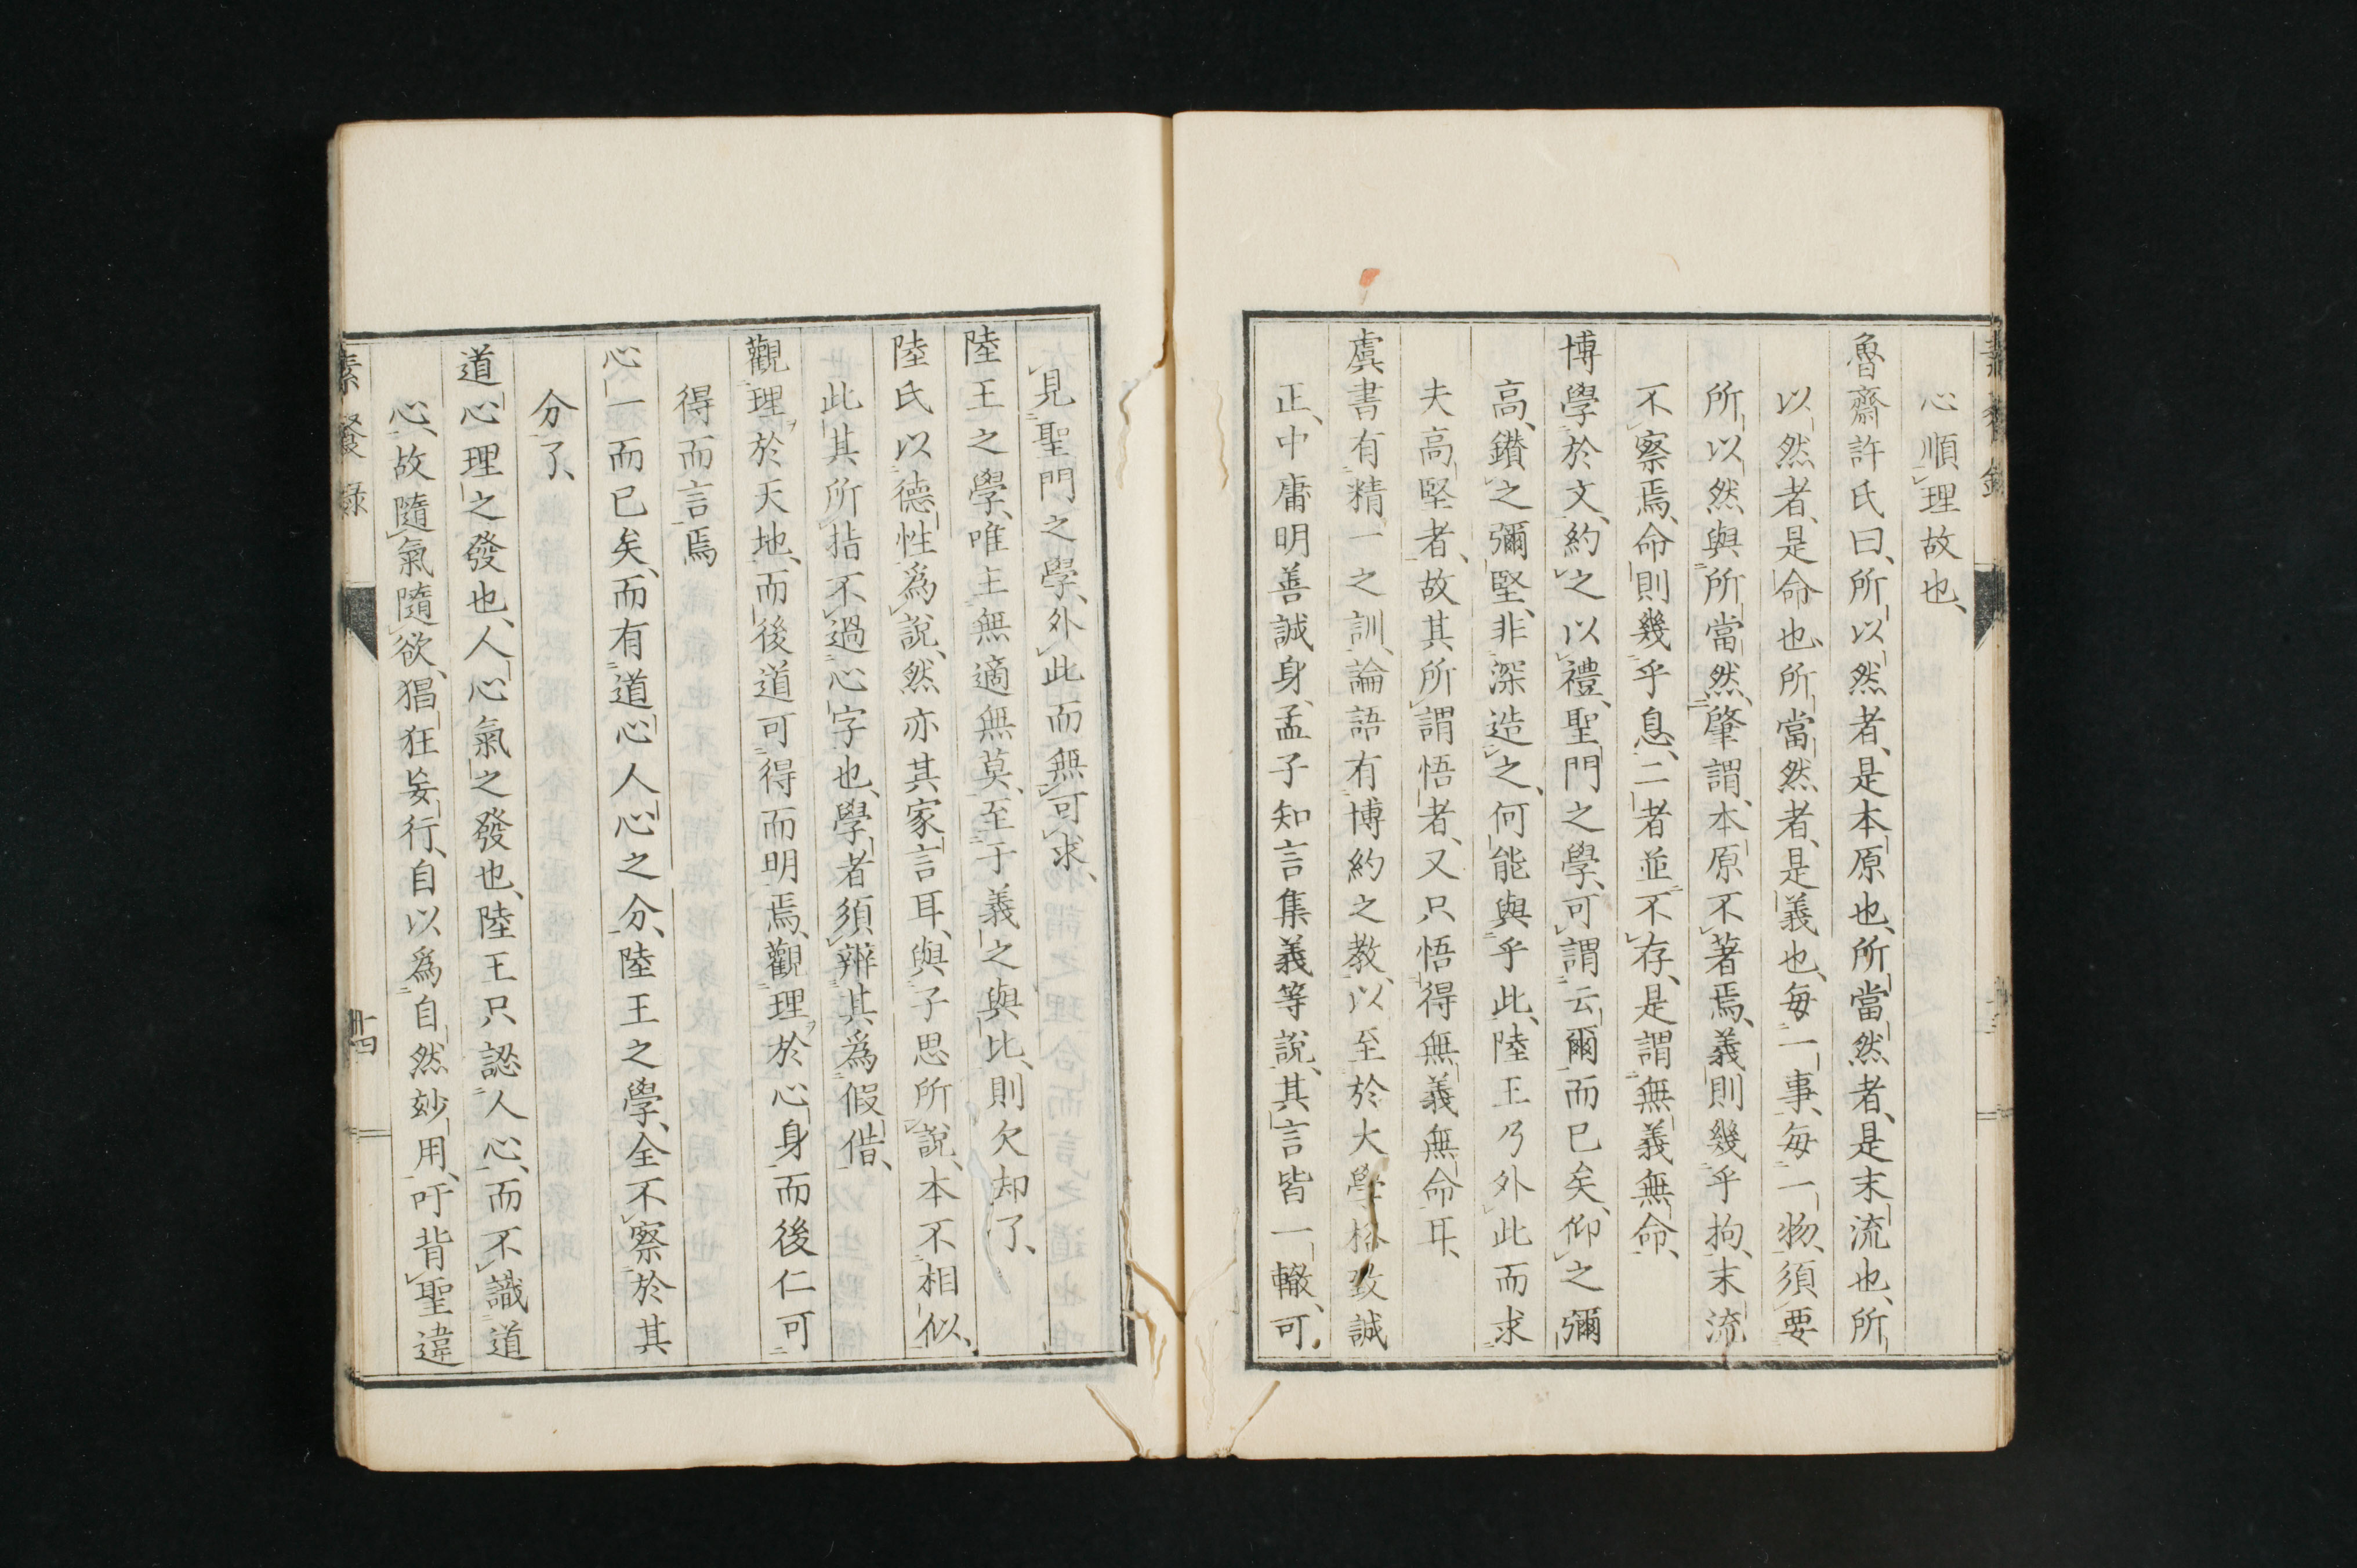 心順理故也、
魯齋許氏曰、所以然者、是本原也、所當然者、是末流也、所
以然者、是命也、所當然者、是義也、每一事、每一物、須要
所以然與所當然、肇謂、本原不著焉、義則幾乎拘、末流
不察焉、命則幾乎息、二者並不存、是謂無義無命、
博學於文、約之以禮、聖門之學、可謂云爾而已矣、仰之彌
高、鑚之彌堅、非深造之、何能與乎此、陸王乃外此而求
夫高堅者、故其所謂悟者、又只悟得無義無命耳、
虞書有精一之訓、論語有博約之教、以至於大學格致誠
正、中庸明善誠身、孟子知言集義等說、其言皆一轍、可
見聖門之學、外此而無可求、
陸王之學、唯主無適無莫、至于義之與比、則欠却了、
陸氏以德性為說、然亦其家言耳、與子思所說、本不相似、
此其所指不過心字也、學者須辨其為假偕、
觀理於天地、而後道可得而明焉、觀理於心身、而後仁可
得而言焉
心一而已矣、而有道心人心之分、陸王之學、全不察於其
分了、
道心理之發也、人心氣之發也、陸王只認人心、而不識道
心、故隨氣隨欲、猖狂妄行、自以為自然妙用、吁背聖違
素餐錄
十四